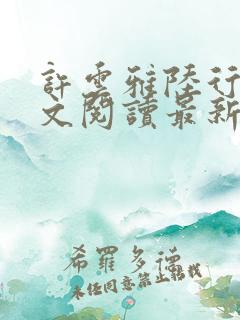 許雲雅陸行
文閱讀最新
希羅多德
未經同意禁止轉載